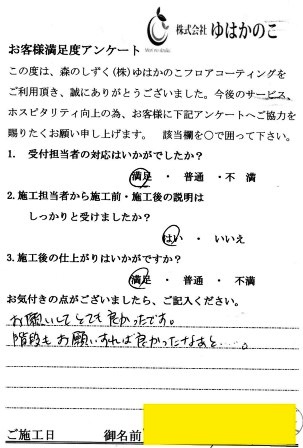 株式会社 ゆはかのこ
お客様満足度アンケート
この度は、森のしずく(株)ゆはかのこフロアコーティングを
ご利用頂き、誠にありがとうございました。今後のサービス、
ホスピタリティ向上の為、お客様に下記アンケートへご協力を
賜りたくお願い申し上げます。 該当欄を〇で囲って下さい。
1. 受付担当者の対応はいかがでしたか?
満足 ・ 普通 ・不 満
2.施工担当者から施工前・施工後の説明は
しっかりと受けましたか?
はい ・ いいえ
3.施工後の仕上がりはいかがですか?
満足 ・ 普通 ・ 不満
お気付きの点がございましたら、ご記入ください。
お願いしてとても良かったです。
階段もお願いすれば良かったなあと…。
ご施工日 御名前